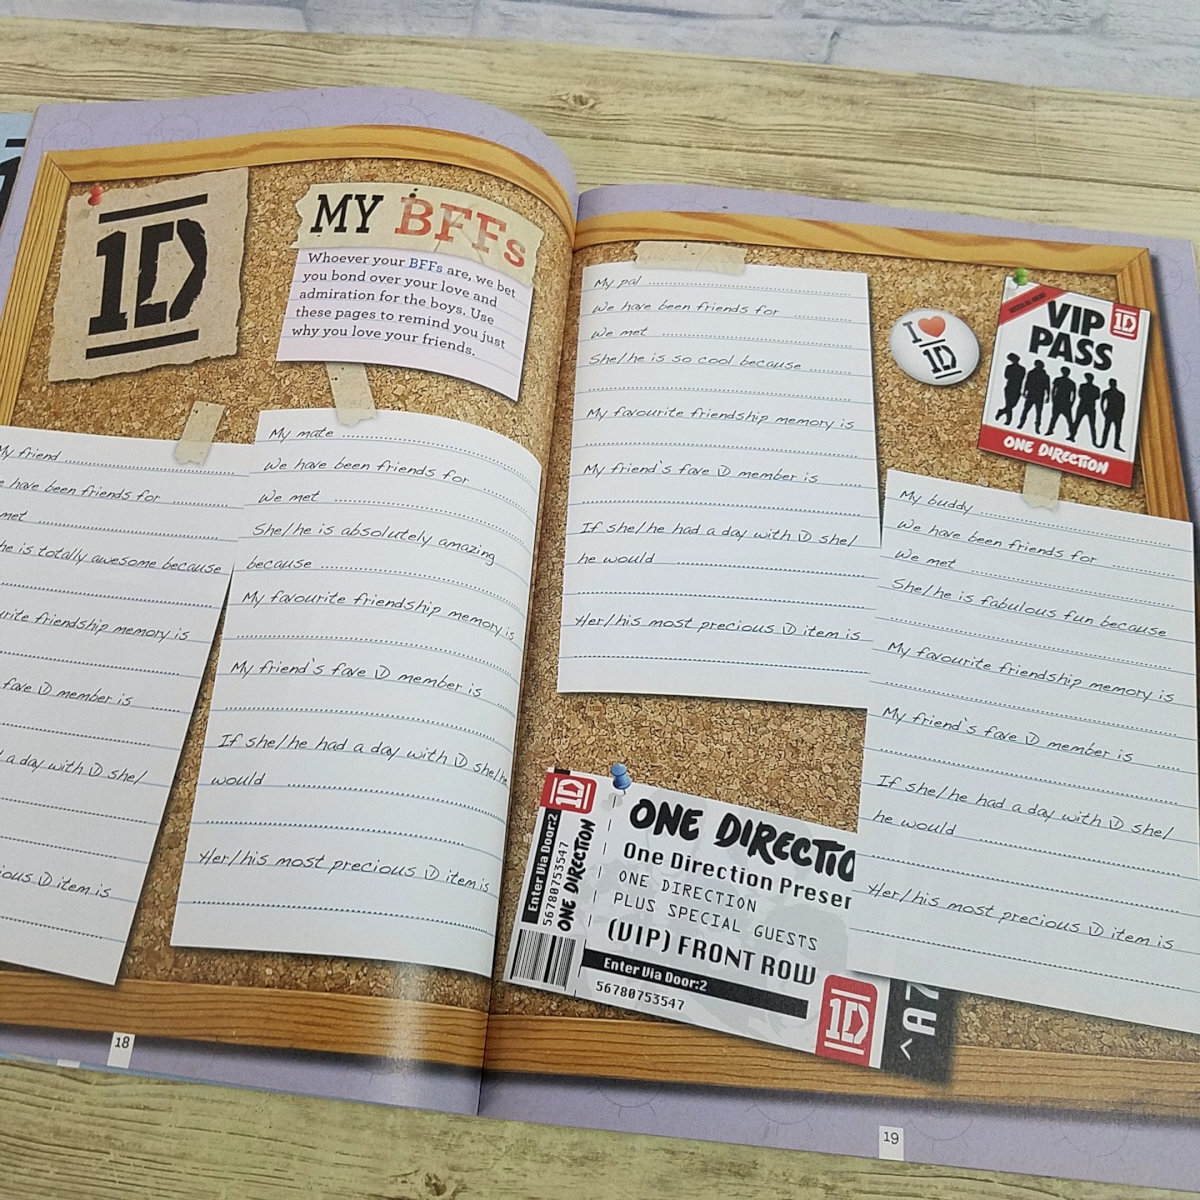 1D
MY BFFs
Whoever your BFFs are, we bet
you bond over your love and
admiration for the boys. Use
these pages to remind you just
why you love your friends.
My friend
have been friends for
met
he is totally awesome because
friendship memory is
fave 1D member is
a day with 1D she/
1D item is
My mate
We have been friends for
We met
She/he is absolutely amazing
because
My favourite friendship memory is
My friend's fave 1D member is
If she/he had a day with 1D she/he
would
Her/his most precious 1D item is
18
My pal
We have been friends for
We met
She/he is so cool because
My favourite friendship memory is
My friend's fave 1D member is
If she/he had a day with 1D she/
he would
Her/his most precious 1D item is
I ❤ 1D
VIP 1D
PASS
ONE DIRECTION
My buddy
We have been friends for
We met
She/he is fabulous fun because
My favourite friendship memory is
My friend's fave 1D member is
If she/he had a day with 1D she/
he would
Her/his most precious 1D item is
1D
Enter Via Door:2
56780753547
ONE DIRECTION
ONE DIRECTIO
One Direction Presen
ONE DIRECTION
PLUS SPECIAL GUESTS
(VIP) FRONT ROW
Enter Via Door:2
56780753547
1D
<A7
19